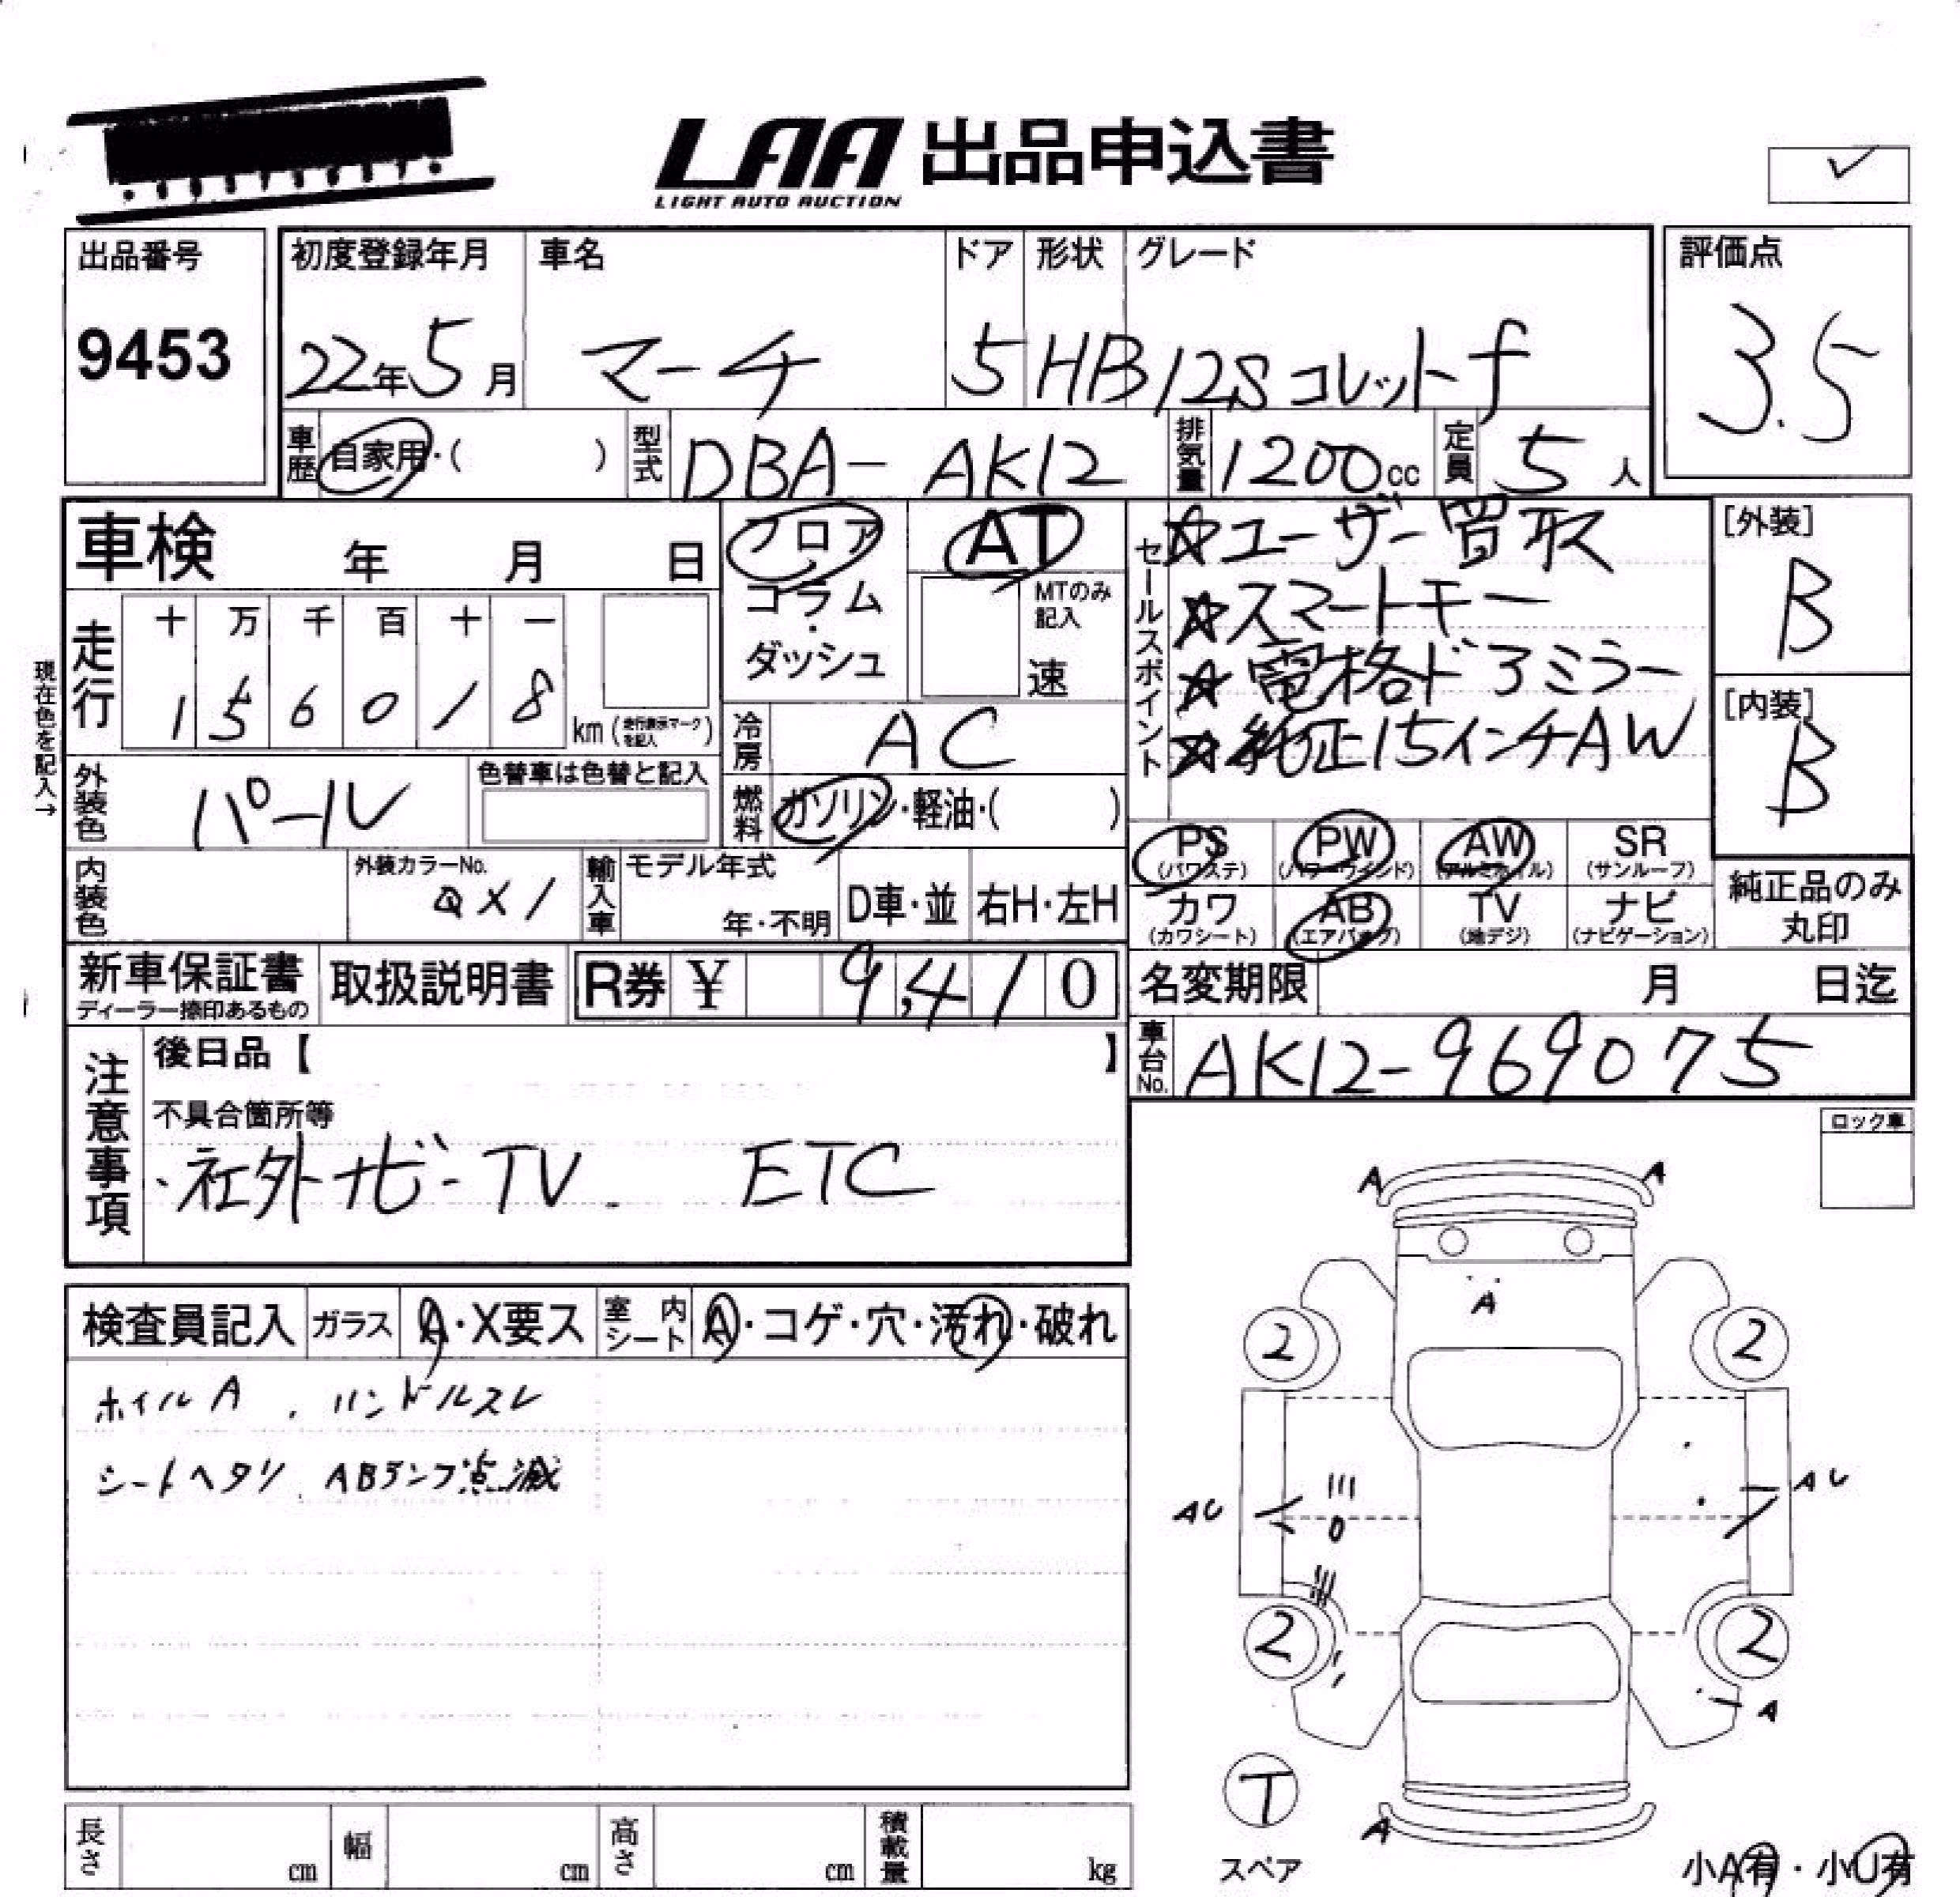 LAA 出品申込書
LIGHT AUTO AUCTION
✓
出品番号
9453
初度登録年月
22年5月
車名
マーチ
ドア
5
形状
HB
グレード
12S コレットf
評価点
3.5
車歴
自家用・( )
型式
DBA-AK12
排気量
1200cc
定員
5人
車検 年 月 日
フロア
コラム・
ダッシュ
AT
MTのみ
記入
速
セールスポイント
☆ユーザー買取
☆スマートキー
☆電格ドアミラー
☆純正15インチAW
[外装]
B
[内装]
B
現在色を記入→
走行
十 万 千 百 十 一
1 5 6 0 1 8
km(走行表示マークを記入)
冷房
AC
外装色
パール
色替車は色替と記入
燃料
ガソリン・軽油・( )
PS (パワステ)
PW (パワーウインド)
AW (アルミホイル)
SR (サンルーフ)
カワ (カワシート)
AB (エアバッグ)
TV (地デジ)
ナビ (ナビゲーション)
純正品のみ
丸印
内装色
外装カラーNo.
QX1
輸入車
モデル年式
年・不明
D車・並
右H・左H
新車保証書
ディーラー捺印あるもの
取扱説明書
R券 ¥ 9,410
名変期限 月 日迄
車台No.
AK12-969075
注意事項
後日品【 】
不具合箇所等
・社外ナビ-TV. ETC
ロック車
検査員記入
ガラス A・X要ス
室内シート A・コゲ・穴・汚れ・破れ
ホイルA . ハンドルスレ
シートヘタリ. ABランプ点滅
A A
A
2 2
AU AU
2 2
A
T
スペア
A
小A有・小U有
長さ cm
幅 cm
高さ cm
積載量 kg